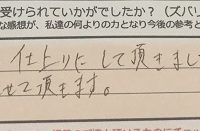 受けられていかがでしたか？（ズバリ
な感想が、私達の何よりの力となり今後の参考と
仕上りに して頂きまし
せて頂きます。